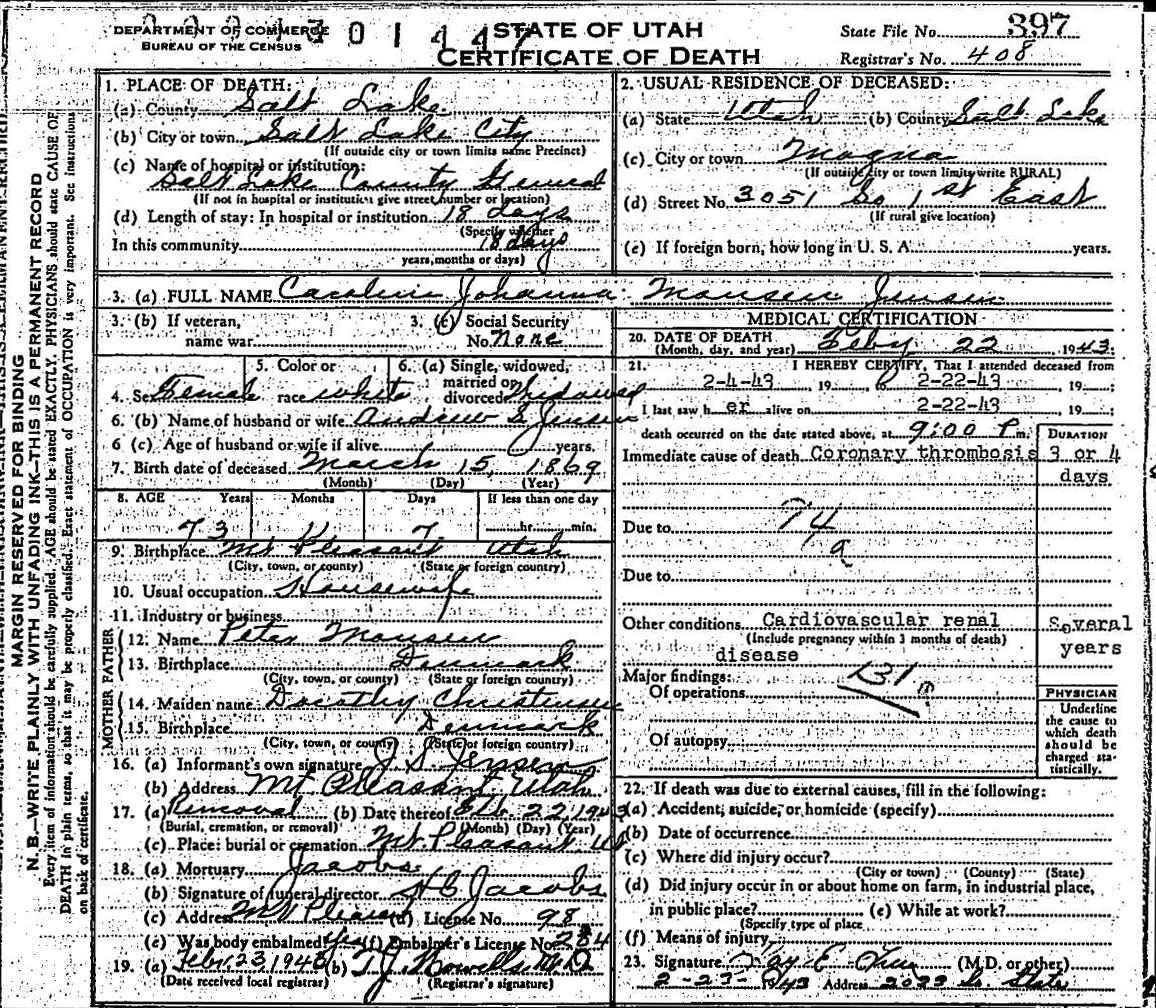 DEPARTMENT OF COMMERCE
BUREAU OF THE CENSUS
STATE OF UTAH
CERTIFICATE OF DEATH
State File No. 397
Registrar's No. 408
MARGIN RESERVED FOR BINDING
N. B.—WRITE PLAINLY WITH UNFADING INK—THIS IS A PERMANENT RECORD
Every item of information should be carefully supplied. AGE should be stated EXACTLY. PHYSICIANS should state CAUSE OF
DEATH in plain terms, so that it may be properly classified. Exact statement of OCCUPATION is very important. See instructions
on back of certificate.
1. PLACE OF DEATH:
(a) County Salt Lake
(b) City or town Salt Lake City
(If outside city or town limits name Precinct)
(c) Name of hospital or institution:
Salt Lake County General
(If not in hospital or institution give street number or location)
(d) Length of stay: In hospital or institution 18 days
(Specify whether
In this community 18 days
years, months or days)
2. USUAL RESIDENCE OF DECEASED:
(a) State Utah (b) County Salt Lake
(c) City or town Magna
(If outside city or town limits write RURAL)
(d) Street No. 3051 So 1st East
(If rural give location)
(e) If foreign born, how long in U. S. A. years.
3. (a) FULL NAME Caroline Johanna Monsen Jensen
3. (b) If veteran,
name war
3. (c) Social Security
No. None
4. Sex Female
5. Color or
race white
6. (a) Single, widowed,
married or
divorced Widowed
6. (b) Name of husband or wife Andrew S Jensen
6 (c) Age of husband or wife if alive years.
7. Birth date of deceased March 15 1869
(Month) (Day) (Year)
8. AGE Years Months Days If less than one day
73 11 7 hr. min.
9. Birthplace Mt Pleasant Utah
(City, town, or county) (State or foreign country)
10. Usual occupation Housewife
11. Industry or business
FATHER
12. Name Peter Monsen
13. Birthplace Denmark
(City, town, or county) (State or foreign country)
MOTHER
14. Maiden name Dorothy Christensen
15. Birthplace Denmark
(City, town, or county) (State or foreign country)
16. (a) Informant's own signature J S Jensen
(b) Address Mt Pleasant, Utah
17. (a) Removal (b) Date thereof Feb. 22, 1943
(Burial, cremation, or removal) (Month) (Day) (Year)
(c) Place: burial or cremation Mt. Pleasant Ut
18. (a) Mortuary Jacobs
(b) Signature of funeral director H C Jacobs
(c) Address Mt Pleasant (d) License No. 98
(e) Was body embalmed Yes (f) Embalmer's License No. 234
19. (a) Febr. 23 1943 (b) T. J. Howells M.D.
(Date received local registrar) (Registrar's signature)
MEDICAL CERTIFICATION
20. DATE OF DEATH
(Month, day, and year) Feby 22 1943
21. I HEREBY CERTIFY, That I attended deceased from
2-4-43 19 2-22-43 19
I last saw her alive on 2-22-43 19
death occurred on the date stated above, at 9:00 P m.
DURATION
Immediate cause of death Coronary thrombosis 3 or 4
days
Due to 94
a
Due to
Other conditions Cardiovascular renal Several
(Include pregnancy within 3 months of death)
disease years
Major findings: 131
Of operations
Of autopsy
PHYSICIAN
Underline
the cause to
which death
should be
charged sta-
tistically.
22. If death was due to external causes, fill in the following:
(a) Accident, suicide, or homicide (specify)
(b) Date of occurrence
(c) Where did injury occur?
(City or town) (County) (State)
(d) Did injury occur in or about home on farm, in industrial place,
in public place? (e) While at work?
(Specify type of place
(f) Means of injury
23. Signature Ray E (M.D. or other)
2-23-1943 Address 2033 So. State